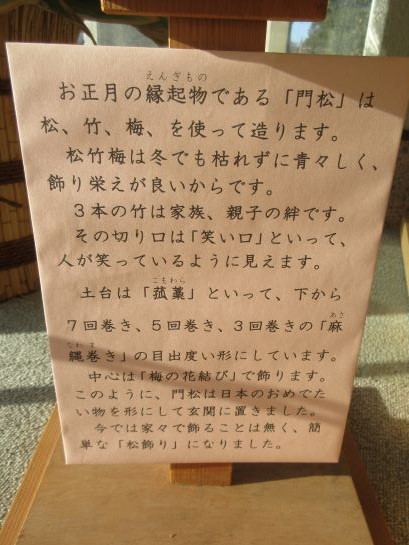 えんぎもの
お正月の縁起物である「門松」は
松、竹、梅、を使って造ります。
松竹梅は冬でも枯れずに青々しく、
飾り栄えが良いからです。
3本の竹は家族、親子の絆です。
その切り口は「笑い口」といって、
人が笑っているように見えます。
こもわら
土台は「菰藁」といって、下から
あさ
7回巻き、5回巻き、3回巻きの「麻
なわ ま
縄巻き」の目出度い形にしています。
中心は「梅の花結び」で飾ります。
このように、門松は日本のおめでた
い物を形にして玄関に置きました。
今では家々で飾ることは無く、簡
単な「松飾り」になりました。